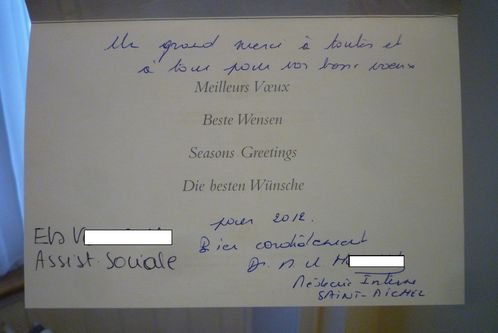 Un grand merci à toutes et
à tous pour vos bons voeux
Meilleurs Vœux
Beste Wensen
Seasons Greetings
Die besten Wünsche
pour 2012.
Bien cordialement
Dr.
Médecine Interne
SAINT-MICHEL
Assist. Sociale